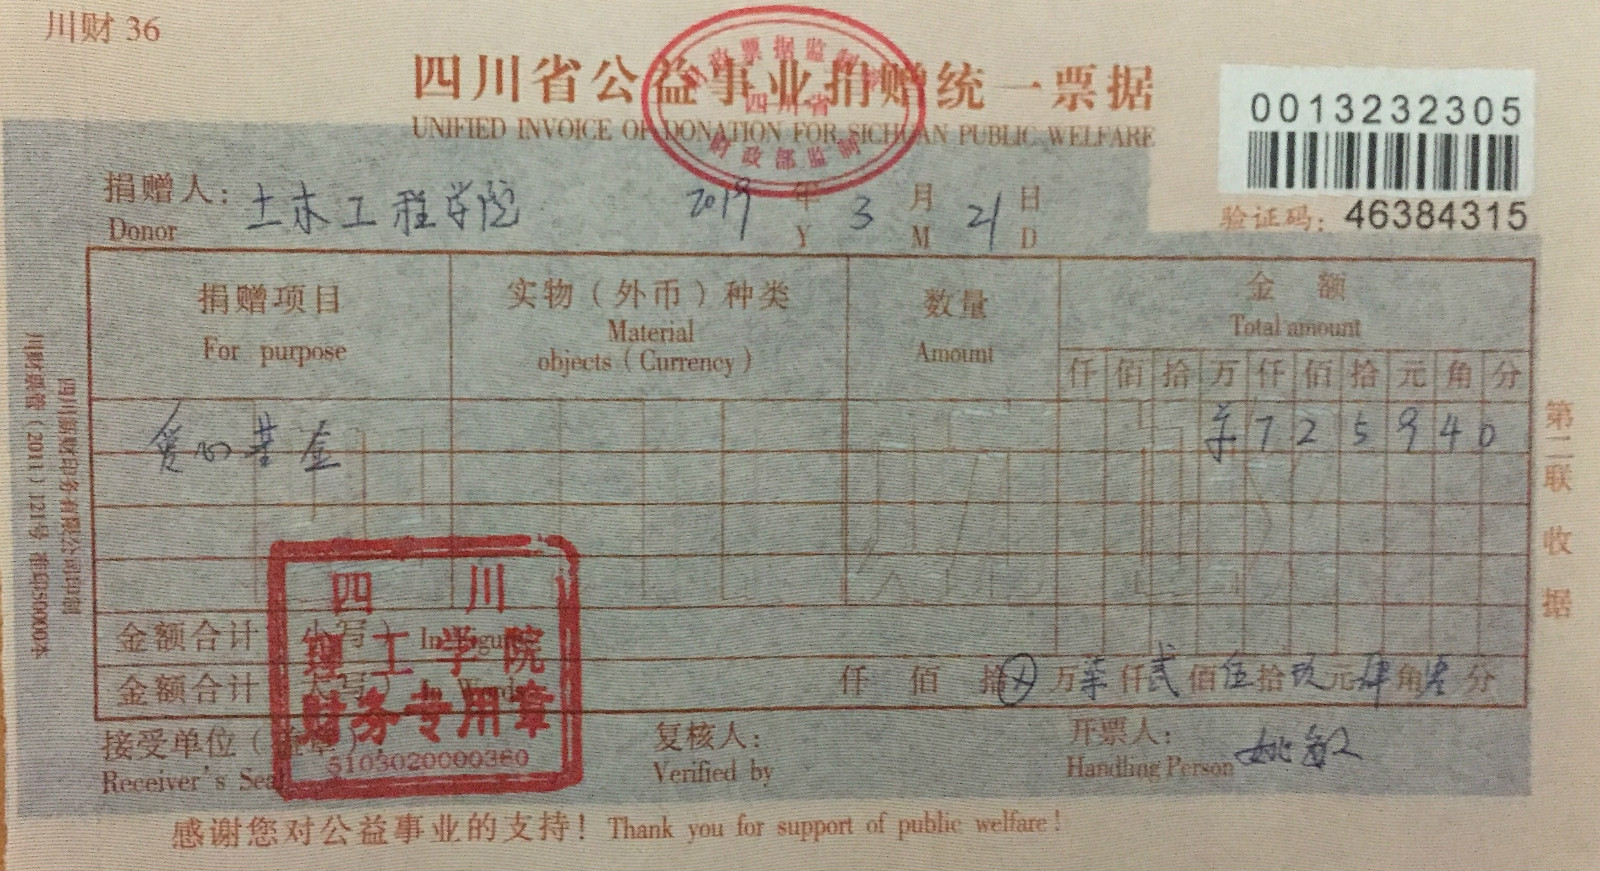 川财 36
四川省公益事业捐赠统一票据
UNIFIED INVOICE OF DONATION FOR SICHUAN PUBLIC WELFARE
财政票据监制章
四川省
财政部监制
0013232305
验证码：46384315
捐赠人：土木工程学院 2019 年 3 月 21 日
Donor Y M D
捐赠项目 实物（外币）种类 数量 金额
For purpose Material objects（Currency） Amount Total amount
仟 佰 拾 万 仟 佰 拾 元 角 分
爱心基金 ￥ 7 2 5 9 4 0
金额合计（小写）In Figures
金额合计（大写）In Words 仟 佰 拾 ⊗ 万 柒 仟 贰 佰 伍 拾 玖 元 肆 角 零 分
四川
理工学院
财务专用章
5103020000360
接受单位（盖章） 复核人： 开票人：姚敏
Receiver's Seal Verified by Handling Person
感谢您对公益事业的支持！Thank you for support of public welfare！
第二联 收据